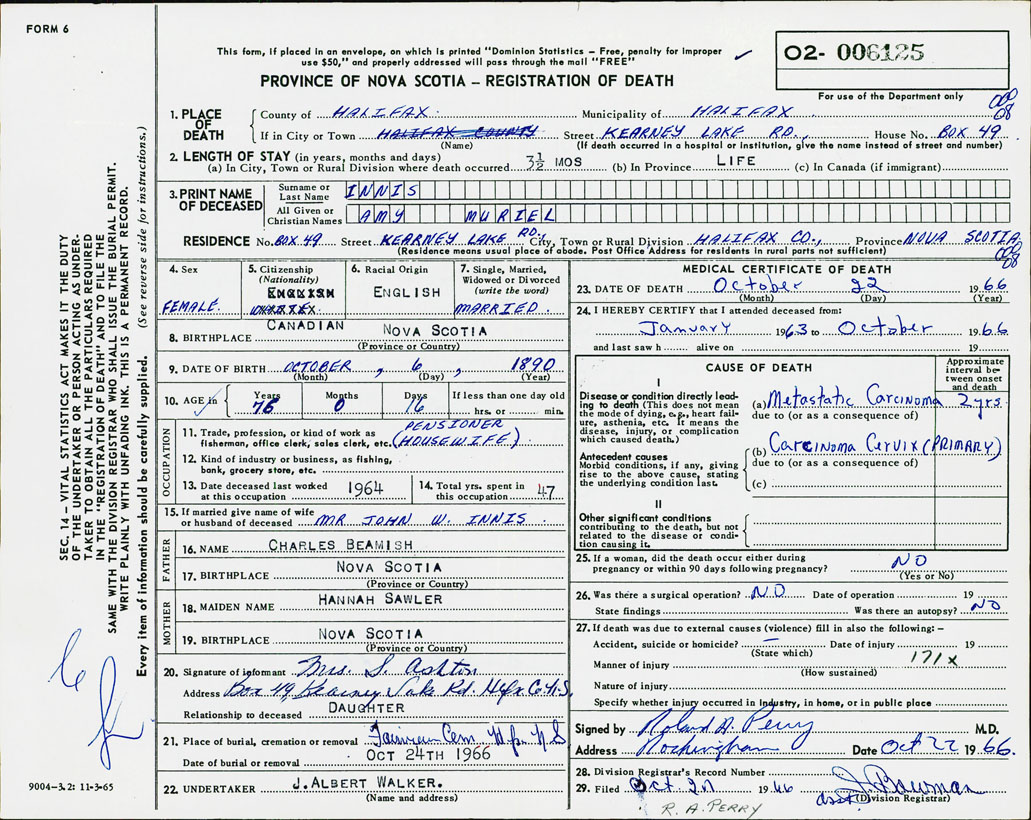 FORM 6
This form, if placed in an envelope, on which is printed "Dominion Statistics – Free, penalty for improper
use $50," and properly addressed will pass through the mail "FREE"
O2- 006125
For use of the Department only
PROVINCE OF NOVA SCOTIA – REGISTRATION OF DEATH
SEC. 14 – VITAL STATISTICS ACT MAKES IT THE DUTY
OF THE UNDERTAKER OR PERSON ACTING AS UNDER-
TAKER TO OBTAIN ALL THE PARTICULARS REQUIRED
IN THE "REGISTRATION OF DEATH" AND TO FILE THE
SAME WITH THE DIVISION REGISTRAR WHO SHALL ISSUE THE BURIAL PERMIT.
WRITE PLAINLY WITH UNFADING INK. THIS IS A PERMANENT RECORD.
Every item of information should be carefully supplied. (See reverse side for instructions.)
1. PLACE OF DEATH
County of HALIFAX Municipality of HALIFAX
If in City or Town HALIFAX COUNTY Street KEARNEY LAKE RD., House No. BOX 49
(Name) (If death occurred in a hospital or institution, give the name instead of street and number)
2. LENGTH OF STAY (in years, months and days)
(a) In City, Town or Rural Division where death occurred 3½ MOS (b) In Province LIFE (c) In Canada (if immigrant)
3. PRINT NAME OF DECEASED
Surname or Last Name INNIS
All Given or Christian Names AMY MURIEL
RESIDENCE No. BOX 49 Street KEARNEY LAKE RD., City, Town or Rural Division HALIFAX CO., Province NOVA SCOTIA
(Residence means usual place of abode. Post Office Address for residents in rural parts not sufficient)
4. Sex FEMALE
5. Citizenship (Nationality) ENGLISH CANADIAN
6. Racial Origin ENGLISH
7. Single, Married, Widowed or Divorced (write the word) MARRIED
8. BIRTHPLACE NOVA SCOTIA
(Province or Country)
9. DATE OF BIRTH OCTOBER, 6, 1890
(Month) (Day) (Year)
10. AGE in Years 76 Months 0 Days 16 If less than one day old hrs. or min.
OCCUPATION
11. Trade, profession, or kind of work as fisherman, office clerk, sales clerk, etc. PENSIONER (HOUSEWIFE)
12. Kind of industry or business, as fishing, bank, grocery store, etc.
13. Date deceased last worked at this occupation 1964
14. Total yrs. spent in this occupation 47
15. If married give name of wife or husband of deceased MR JOHN W. INNIS
FATHER
16. NAME CHARLES BEAMISH
17. BIRTHPLACE NOVA SCOTIA
(Province or Country)
MOTHER
18. MAIDEN NAME HANNAH SAWLER
19. BIRTHPLACE NOVA SCOTIA
(Province or Country)
20. Signature of informant Mrs. S. Ashton
Address Box 49 Kearney Lake Rd. Hfx Co. N.S.
Relationship to deceased DAUGHTER
21. Place of burial, cremation or removal Fairview Cem. Hfx N.S
Date of burial or removal OCT 24TH 1966
22. UNDERTAKER J. ALBERT WALKER.
(Name and address)
9004-3.2: 11-3-65
MEDICAL CERTIFICATE OF DEATH
23. DATE OF DEATH October 22 1966
(Month) (Day) (Year)
24. I HEREBY CERTIFY that I attended deceased from:
January 1963 to October 1966
and last saw h alive on 19
CAUSE OF DEATH
Approximate interval between onset and death
I
Disease or condition directly leading to death (This does not mean the mode of dying, e.g., heart failure, asthenia, etc. It means the disease, injury, or complication which caused death.)
(a) Metastatic Carcinoma 2 yrs
due to (or as a consequence of)
Antecedent causes
Morbid conditions, if any, giving rise to the above cause, stating the underlying condition last.
(b) Carcinoma Cervix (PRIMARY)
due to (or as a consequence of)
(c)
II
Other significant conditions contributing to the death, but not related to the disease or condition causing it.
25. If a woman, did the death occur either during pregnancy or within 90 days following pregnancy? NO
(Yes or No)
26. Was there a surgical operation? NO Date of operation 19
State findings Was there an autopsy? NO
27. If death was due to external causes (violence) fill in also the following: –
Accident, suicide or homicide? – Date of injury 19
(State which)
Manner of injury 171x
(How sustained)
Nature of injury
Specify whether injury occurred in industry, in home, or in public place
Signed by Roland A. Perry M.D.
Address Rockingham Date Oct 22 1966.
28. Division Registrar's Record Number
29. Filed Oct. 27 1966 J. Bowman
asst. (Division Registrar)
R. A. PERRY